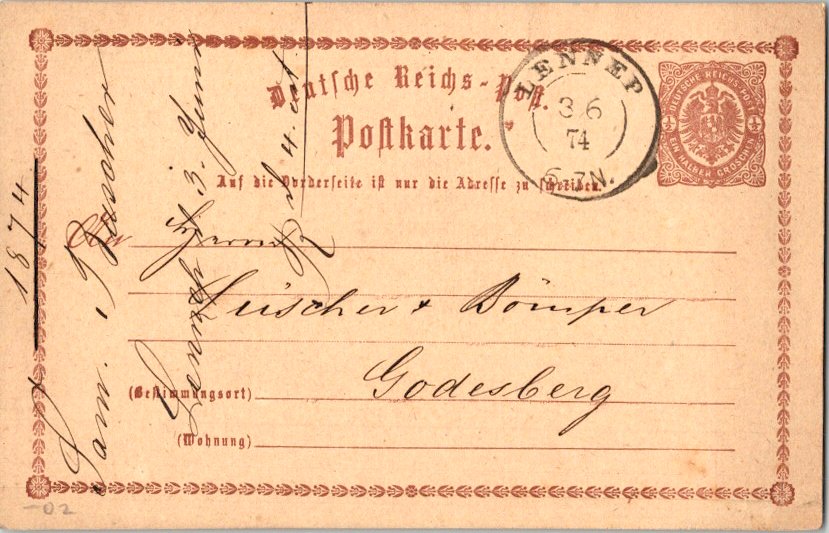 Deutsche Reichs-Post.
Postkarte.
Auf die Vorderseite ist nur die Adresse zu schreiben.
LENNEP
3 6
74
6-7N.
DEUTSCHE REICHS-POST
EIN HALBER GROSCHEN
An
Herren
Lüscher & Bömper
Godesberg
(Bestimmungsort)
(Wohnung)
1874
Sam. Buscher
Lennep 3. Juni
R 4
-02